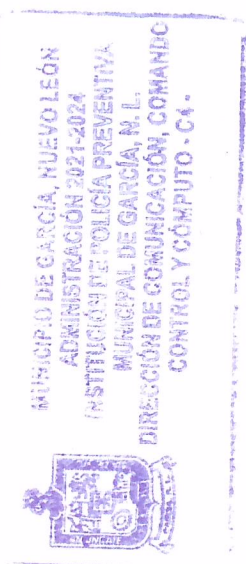 MUNICIPIO DE GARCÍA, NUEVO LEÓN
ADMINISTRACIÓN 2021-2024
INSTITUCIÓN DE POLICÍA PREVENTIVA
MUNICIPAL DE GARCÍA, N. L.
DIRECCIÓN DE COMUNICACIÓN, COMANDO
CONTROL Y CÓMPUTO - C4.